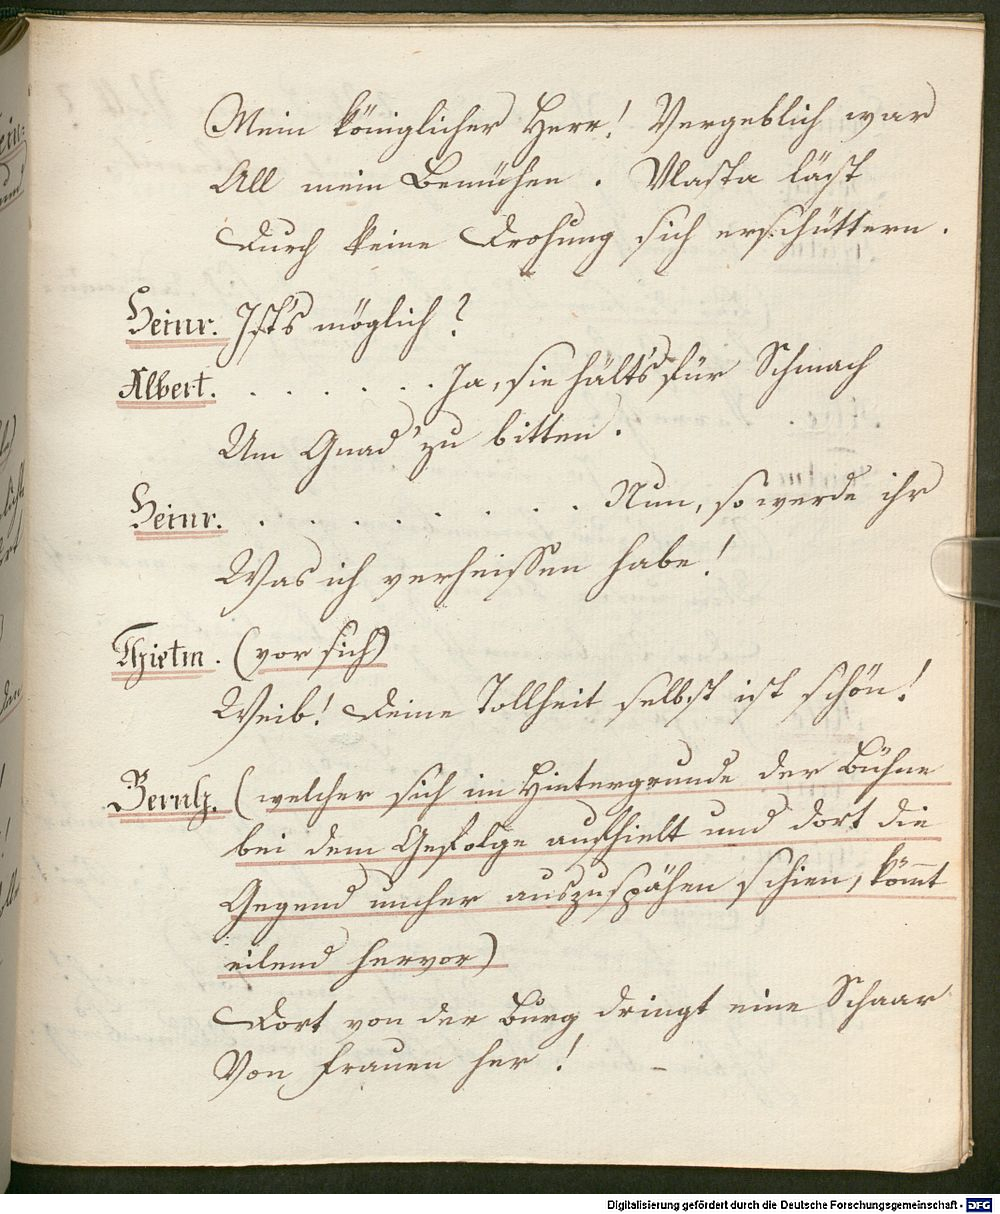 Mein königlicher Herr! Vergeblich war
All mein Bemühen. Vlasta läßt
Durch keine Drohung sich erschüttern.
Heinr. Ist's möglich?
Albert. . . . . . . Ja, sie hält's für Schmach
Um Gnad' zu bitten.
Heinr. . . . . . . . . Nun, so werde ihr
Was ich verheissen habe!
Thietm. (vor sich)
Weib! Deine Tollheit selbst ist schön!
Bernh. (welcher sich im Hintergrunde der Bühne
bei dem Gefolge aufhielt und dort die
Gegend umher auszuspähen schien, kömmt
eilend hervor)
Dort von der Burg dringt eine Schaar
Von Frauen her! –
Digitalisierung gefördert durch die Deutsche Forschungsgemeinschaft - DFG